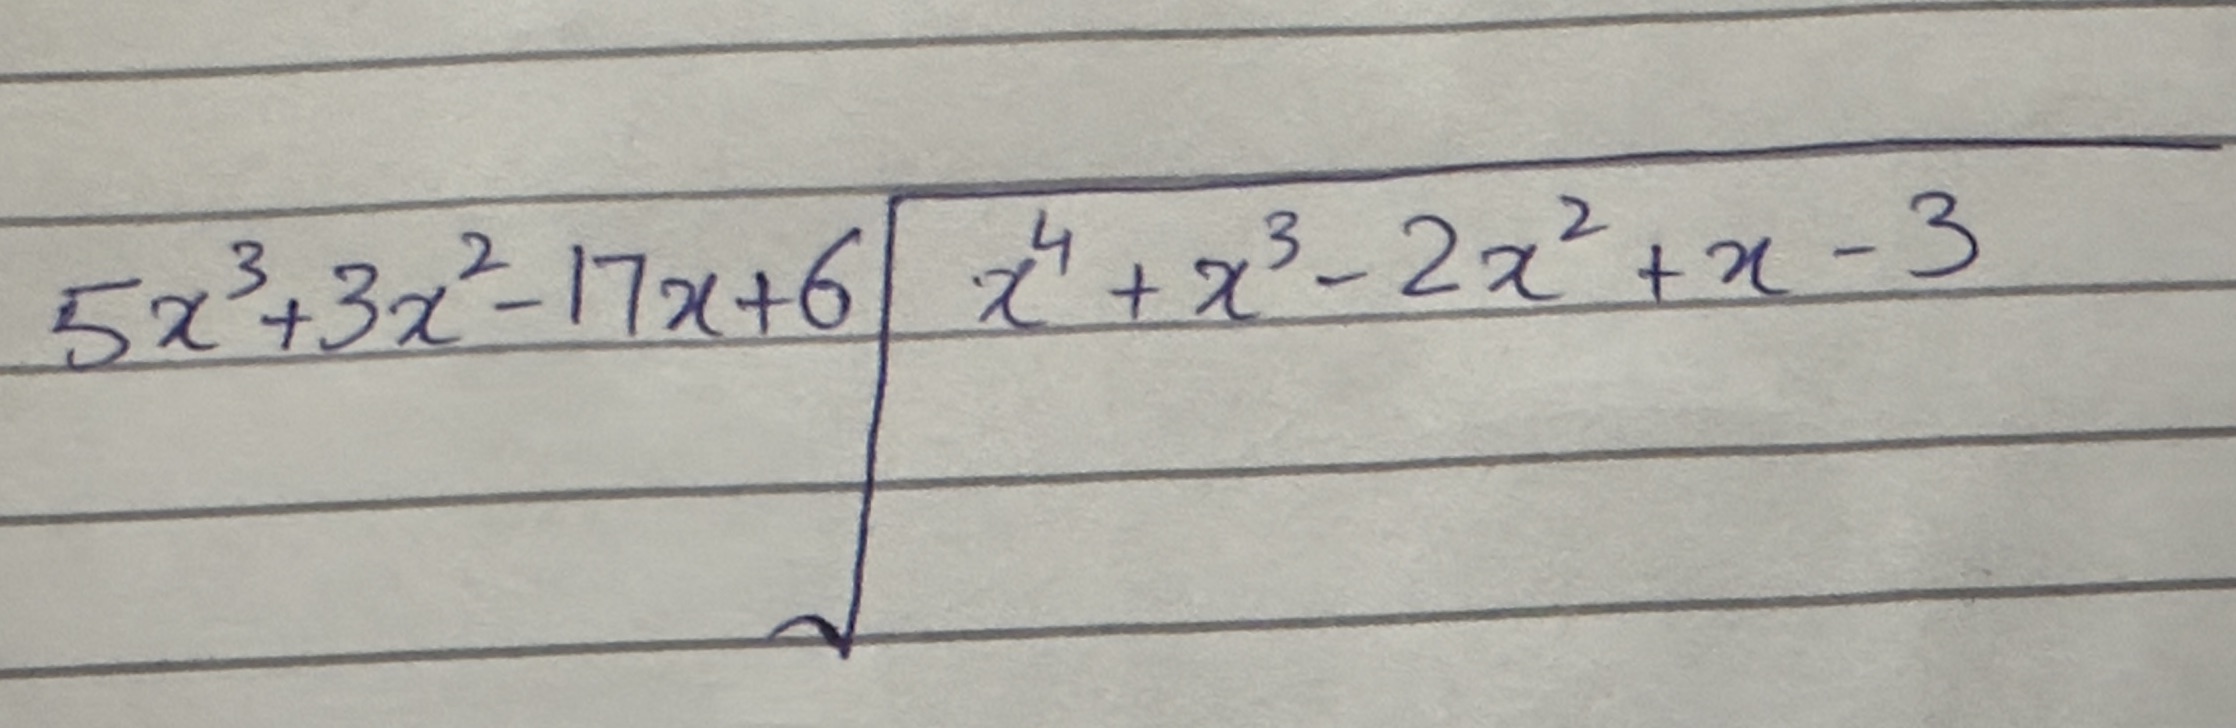 5x³+3x²-17x+6√x⁴+x³-2x²+x-3